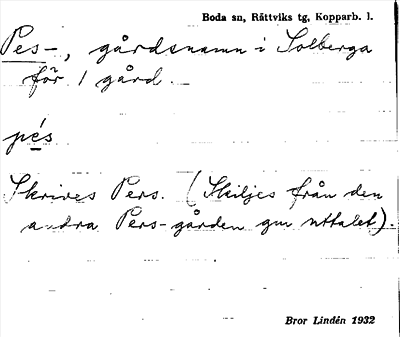 Boda sn, Rättviks tg, Kopparb. l.
Pes-, gårdsnamn i Solberga
för 1 gård.
pe̱s
Skrives Pers. (Skiljes från den
andra Pers-gården gm uttalet).
Bror Lindén 1932